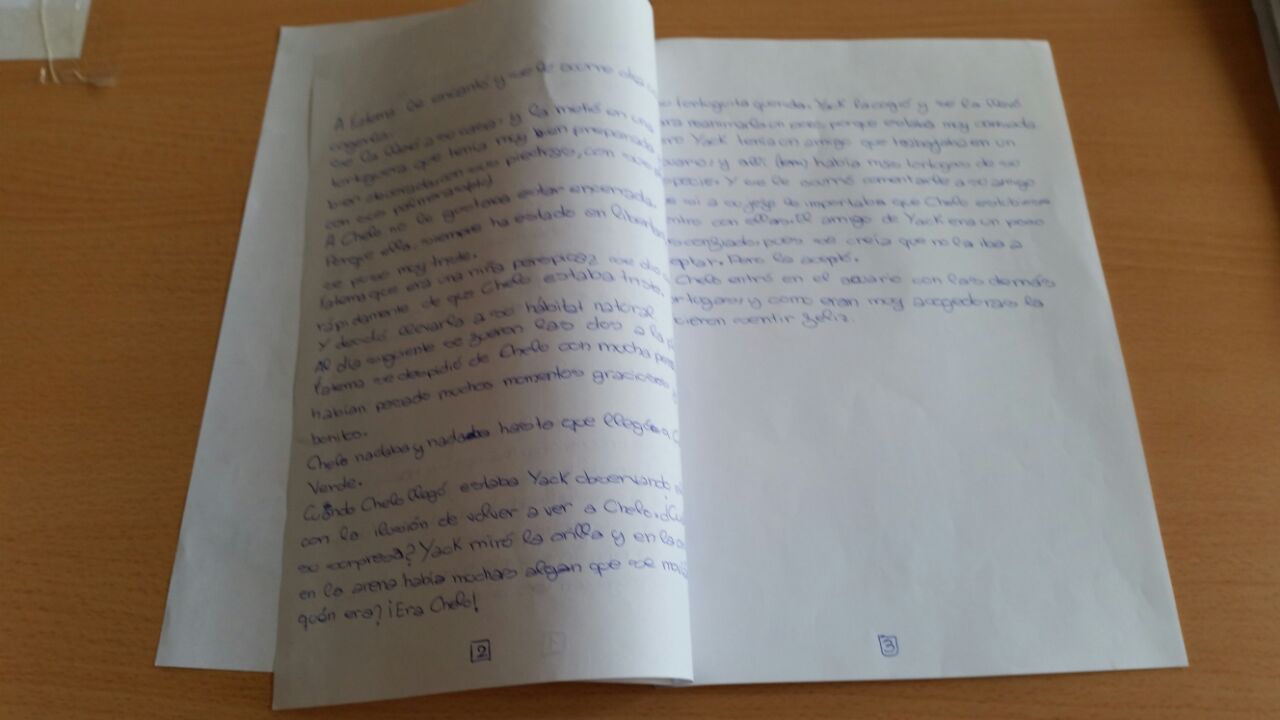 A Fatema le encantó y se le ocurre
cogerla.
Se la llevó a su casa, y la metió en una
tortuguera que tenía muy bien preparada
bien decorada, con sus piedras, con
con sus palmeras
A Chelo no le gustaba estar encerrada.
Porque ella, siempre ha estado en libertad
se puso muy triste.
Fatema que era una niña perspicaz se dio
rápidamente de que Chelo estaba triste.
Y decidió llevarla a su hábitat natural
Al día siguiente se fueron las dos a la
Fatema se despidió de Chelo con mucha
habían pasado muchos momentos graciosos y
bonitos.
Chelo nadaba y nadaba hasta que llegó a
Verde.
Cuando Chelo llegó estaba Yack observando
con la ilusión de volver a ver a Chelo.
su sorpresa? Yack miró la orilla y en la
en la arena había muchas algan que se
quén era? ¡Era Chelo!
2
tortuguita querida. Yack la cogió y se la llevó
reanimarla un poco, porque estaba muy cansada
Yack tenía un amigo que trabajaba en un
y allí había más tortugas de su
Y se le ocurrió comentarle a su amigo
si a su jefe le importaba que Chelo estubiera
con ellas. El amigo de Yack era un poco
pues se creía que no la iba a
Pero la aceptó.
Chelo entró en el acuario con las demás
y como eran muy acogedoras la
sentir feliz.
3